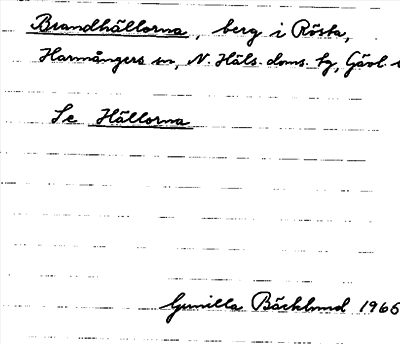 Brandhällorna, berg i Rösta,
Harmångers sn, N. Häls. doms. hg, Gävl.
Se Hällorna
Gunilla Bäcklund 1966